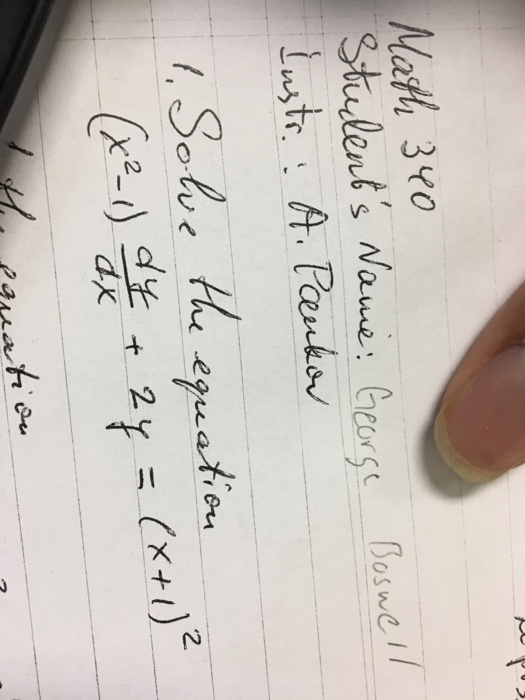 Math 340
Student's Name: George Boswell
Instr.: A. Pankov
1. Solve the equation
(x²-1) dy/dx + 2y = (x+1)²
equation